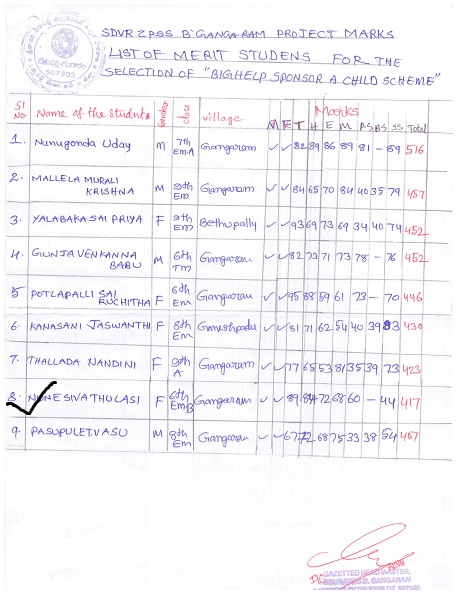 SDVR Z PSS B'GANGARAM PROJECT MARKS
LIST OF MERIT STUDENS FOR THE
SELECTION OF "BIGHELP SPONSOR A CHILD SCHEME"
507303
Marks
Sl No Name of the Students Gender class village M E T H E M P.S B.S SS Total
1. Nunugonda Uday M 7th Em-A Gangaram ✓ ✓ 82 89 86 89 81 - 89 516
2. MALLELA MURALI KRISHNA M 9th Em Gangaram ✓ ✓ 84 65 70 84 40 35 79 457
3. YALABAKA SAI PRIYA F 9th Em Bethupally ✓ ✓ 93 69 73 69 34 40 74 452
4. GUNJA VENKANNA BABU M 6th TM Gangaram ✓ ✓ 82 73 71 73 78 - 76 452
5 POTLAPALLI SAI RUCHITHA F 6th Em Gangaram ✓ ✓ 95 88 59 61 73 - 70 446
6. KANASANI JASWANTHI F 8th Em ✓ ✓ 81 71 62 54 40 39 83 430
7. THALLADA NANDINI F 9th A Gangaram ✓ ✓ 77 65 53 81 35 39 73 423
8. NUNE SIVA THULASI F 6th Em B Gangaram ✓ ✓ 89 84 72 68 60 - 44 417
9. PASUPULETI.VASU M 8th Em Gangaram ✓ ✓ 67 72 68 75 33 38 54 407
GAZETTED HEADMASTER
B. GANGARAM